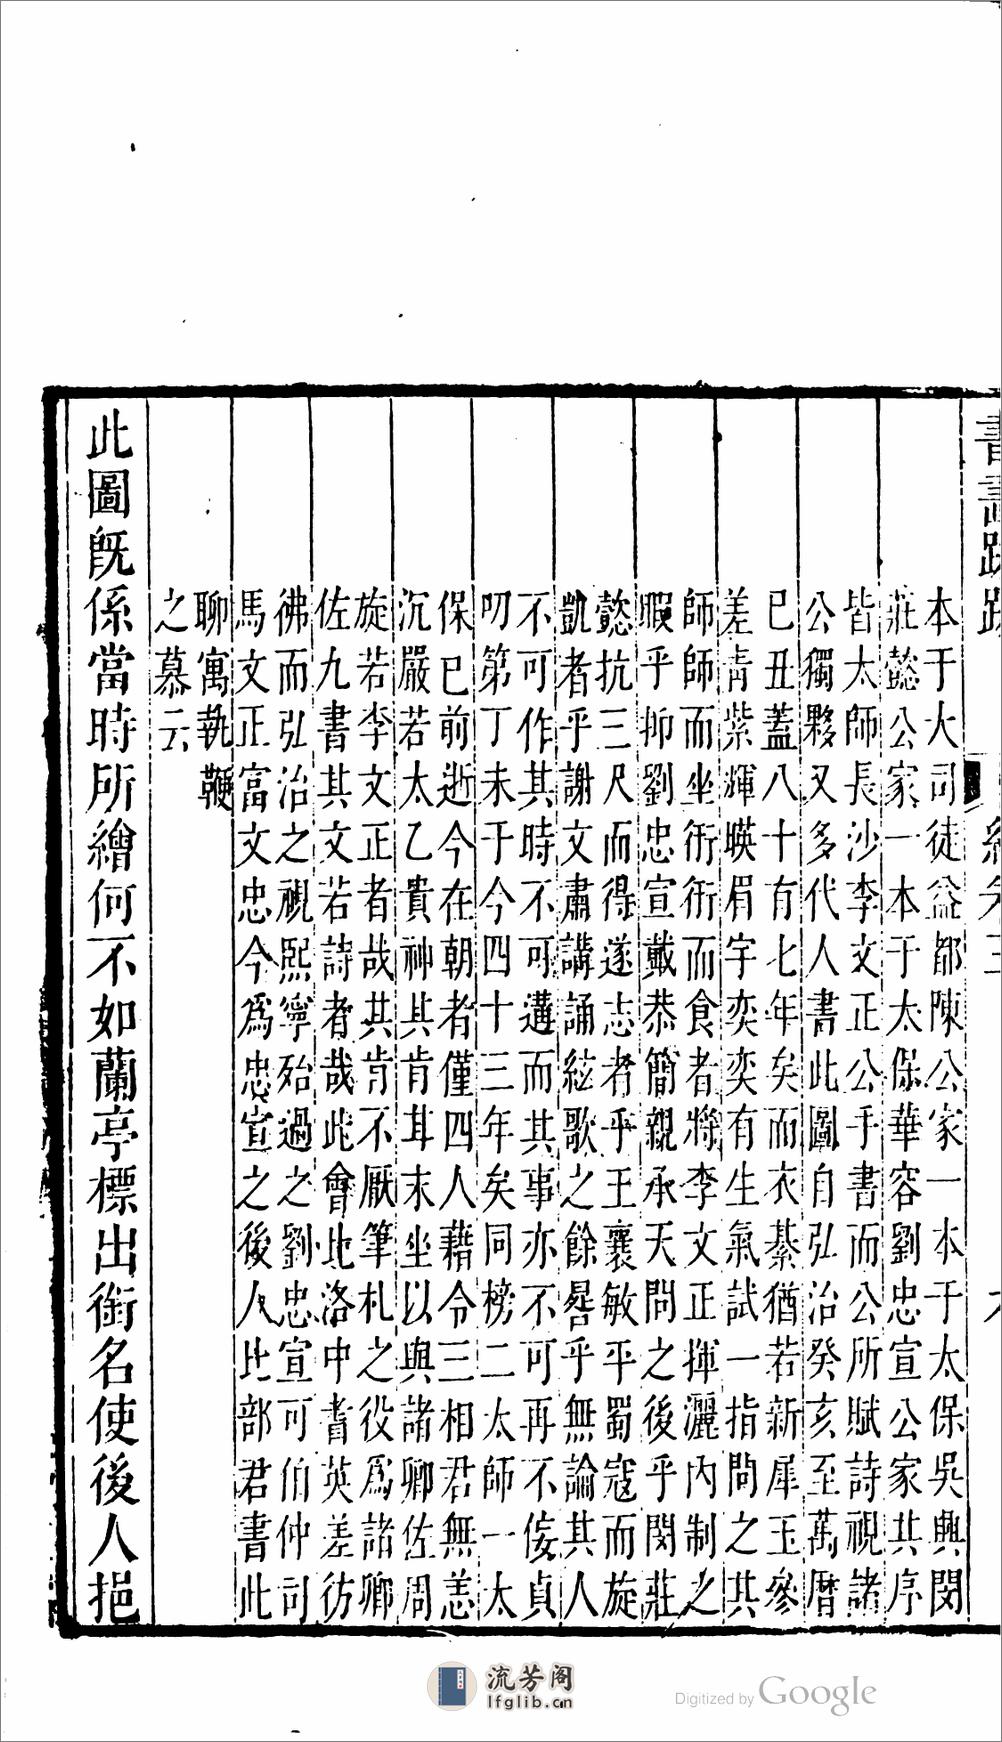 本于大司徒益都陳公家一本于太保吳興閔
莊懿公家一本于太保華容劉忠宣公家其序
皆太師長沙李文正公手書而公所賦詩視諸
公獨夥又多代人書此圖自弘治癸亥至萬曆
已丑蓋八十有七年矣而衣綦猶若新犀玉參
差青紫輝暎眉宇奕奕有生氣試一指問之其
師師而坐衎衎而食者將李文正揮灑內制之
暇乎抑劉忠宣戴恭簡親承天問之後乎閔莊
懿抗三尺而得遂志者乎王襄敏平蜀寇而旋
凱者乎謝文肅講誦絃歌之餘晷乎無論其人
不可作其時不可遘而其事亦不可再不佞貞
叨第丁未于今四十三年矣同榜二太師一太
保已前逝今在朝者僅四人藉令三相君無恙
沉嚴若太乙貴神其肯耳末坐以與諸卿佐周
旋若李文正者哉其肯不厭筆札之役爲諸卿
佐九書其文若詩者哉此會比洛中耆英差彷
彿而弘治之視熙寧殆過之劉忠宣可伯仲司
馬文正富文忠今爲忠宣之後人比部君書此
聊寓執鞭
之慕云
此圖旣係當時所繪何不如蘭亭標出銜名使後人挹
流芳阁
lfglib.cn
Digitized by Google